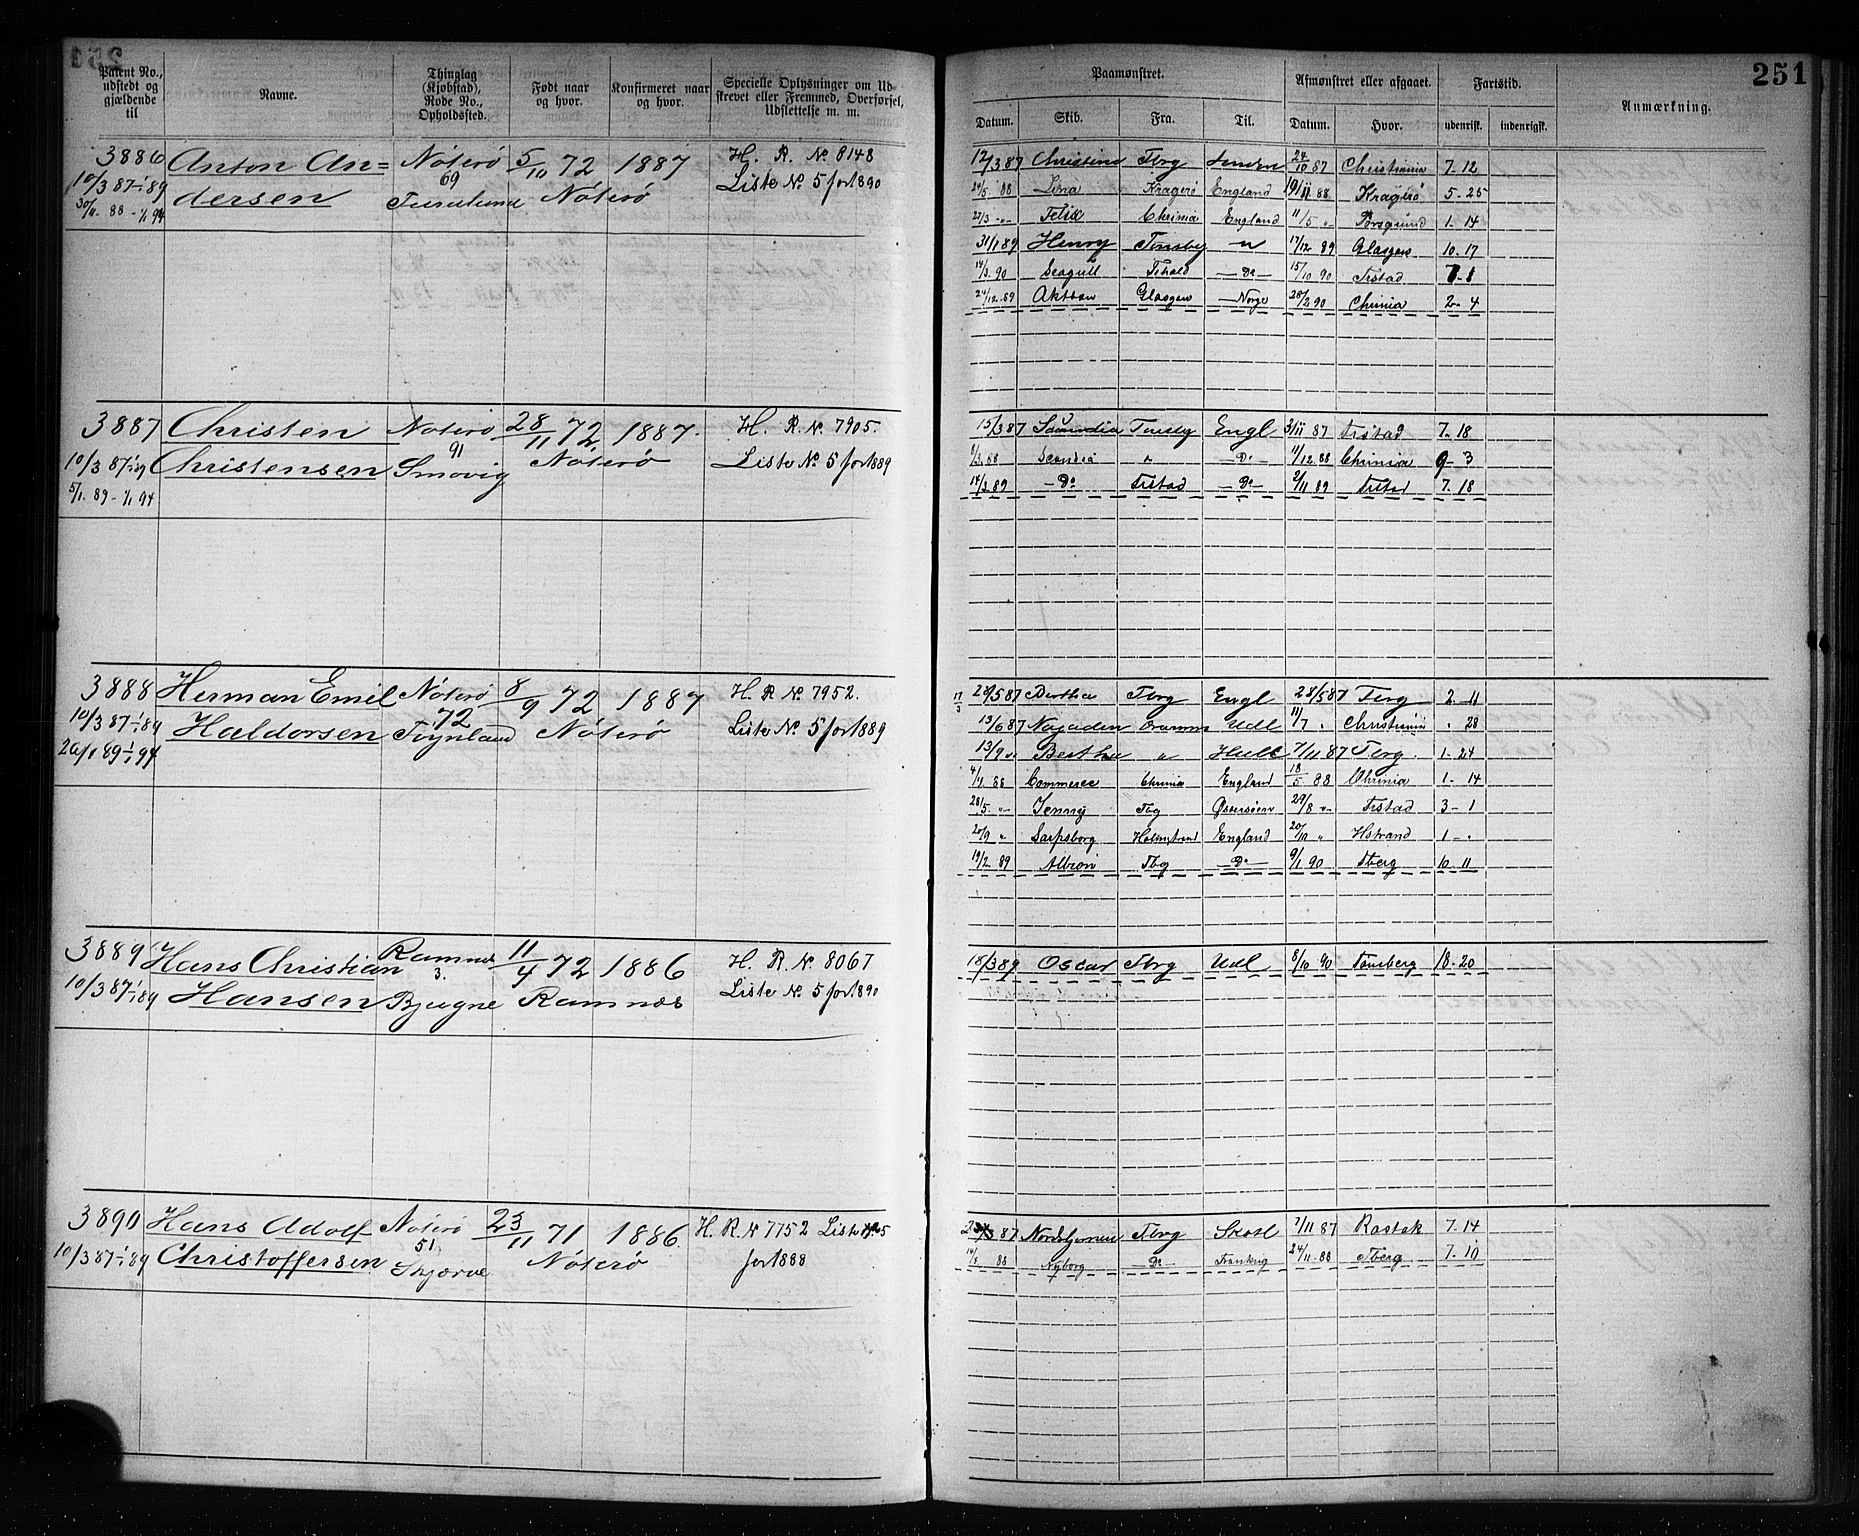 251
Patent No., udstedt og gjældende til
Navne.
Thinglag (Kjøbstad), Rode No., Opholdssted.
Født naar og hvor.
Konfirmeret naar og hvor.
Specielle Oplysninger om Udskrevet eller Fremmed, Overførsel, Udslettelse m. m.
Paamønstret.
Afmønstret eller afgaaet.
Fartstid.
Anmærkning.
Datum. Skib. Fra. Til. Datum. Hvor. udenrigsk. indenrigsk.
3886 Anton An= Nøterø 5/10 72 1887 H. R. No 8148
10/3 87-1/1 89 dersen 69 Nøterø Liste No 5 for 1890
30/11 88 - 1/1 94
12/3 87 Christine Tbrg London 24/10 87 Christiania 7-12
24/5 88 Lina Kragerø England 19/11 88 Kragerø 5-25
22/3 -"- Felix Chrinia England 11/5 " Porsgrund 1-14
31/1 89 Henry Tønsby -"- 17/12 89 Glasgow 10-17
14/3 90 Seagull -Do- 15/10 90 Frstad 7-1
24/12 89 Glasgow Norge 28/2 90 Chrinia 2-4
3887 Christen Nøterø 28/11 72 1887 H. R. No 7905.
10/3 87-1/1 89 Christensen 91 Smøvig Nøterø Liste No 5 for 1889
5/1. 89 - 1/1 94
15/3 87 Tønsby Engl 3/11 87 Frstad 7-18
1/3 88 Scandia " -Do- 11/12 88 Chrinia 9-3
14/3 89 -Do- Frstad -Do- 2/11 89 Frstad 7-18
3888 Herman Emil Nøterø 8/9 72 1887 H. R. No 7952.
10/3 87-1/1 89 Haldorsen 72 Føynland Nøterø Liste No 5 for 1889
20/1 89-1/1 94
17/3 Bertha Tbrg Engl 28/5 87 Tbrg 2-11
13/6 87 Najaden Dramm Udl 11/7 " Christiania " 28
13/9 " Bertha " Hull 7/11 87 Tbrg. 1-24
4/4 88 Commerce Chrinia England 18/5 88 Chrinia 1-14
28/5 -"- Jenny Tbg Østersøen 29/8 -"- Frstad 3-1
20/9 " Sarpsborg Holmstrand England 20/10 " Hstrand 1-"
19/2 89 Albion Tbg -Do- 9/1 90 Tberg 10-11
3889 Hans Christian Ramnes 11/4 72 1886 H. R. No 8067
10/3 87-1/1 89 Hansen 3. Bjugne Ramnæs Liste No 5 for 1890
18/3 89 Oscar Tbrg Udl 8/10 90 Tønsberg 18-20
3890 Hans Adolf Nøterø 23/11 71 1886 H. R. No 7752 Liste No 5
10/3 87-1/1 89 Christoffersen 51 Skjerve Nøterø for 1888
Nordstjernen Tbrg Skotl 7/11 87 Rostok 7-14
88 Nyborg -Do- Frankrig 24/11 88 Tberg 7-10